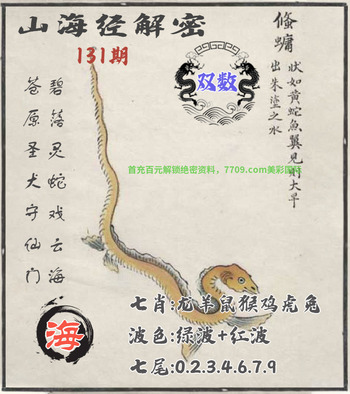 山海经解密
131期
双数
鯈䗤
状如黄蛇鱼翼见则大旱
出朱盧之水
碧落灵蛇戏云海
苍原圣犬守仙门
首充百元解锁绝密资料，7709.com美彩国际
海
七肖:龙羊鼠猴鸡虎兔
波色:绿波+红波
七尾:0.2.3.4.6.7.9